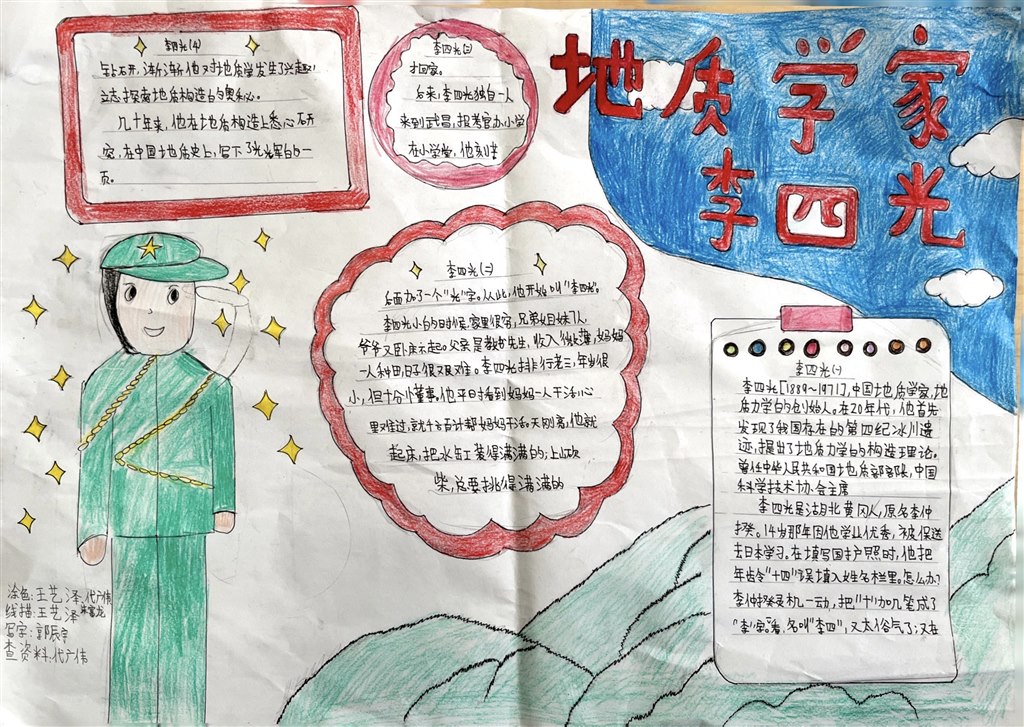 地质学家
李四光
李四光(一)
李四光[1889~1971],中国地质学家,地
质力学的创始人。在20年代,他首先
发现了我国存在的第四纪冰川遗
迹,提出了地质力学的构造理论。
曾任中华人民共和国地质部部长,中国
科学技术协会主席
李四光是湖北黄冈人,原名李仲
揆。14岁那年因他学业优秀,被保送
去日本学习。在填写国护照时,他把
年龄"十四"误填入姓名栏里。怎么办?
李仲揆灵机一动,把"十"加几笔成了
"李"字。看,名叫"李四",又太俗气了;又在
李四光(二)
后面加了一个"光"字。从此,他开始叫"李四光"。
李四光小的时候,家里很穷,兄弟姐妹7人
爷爷又卧床不起。父亲是教书先生,收入微薄,妈妈
一人种田,日子很艰难。李四光排行老三,年岁很
小,但十分懂事,他平日看到妈妈一人干活心
里难过,就千方百计帮妈妈干活。天刚亮,他就
起床,把水缸装得满满的;上山砍
柴,总要挑得满满的
李四光(三)
才回家。
后来,李四光独自一人
来到武昌,报考官办小学
在小学堂,他刻苦
李四光(4)
钻研,渐渐他对地质学发生了兴趣,
立志探索地质构造的奥秘。
几十年来,他在地质构造上悉心研
究,在中国地质史上,写下了光辉的一
页。
涂色:王艺泽,代广伟
线描:王艺泽
写字:郭辰宇
查资料:代广伟